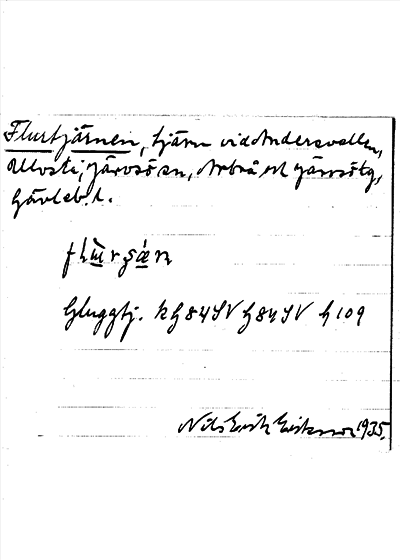 Flurtjärnen, tjärn vid Andersvallen,
Ullsta, Järvsö sn, Arbrå och Järvsö tg,
Gävleb. l.
flùrʂæ̀n
Gluggtj. k G84SV G84SV G 109
Nils Erik Eriksson 1935.